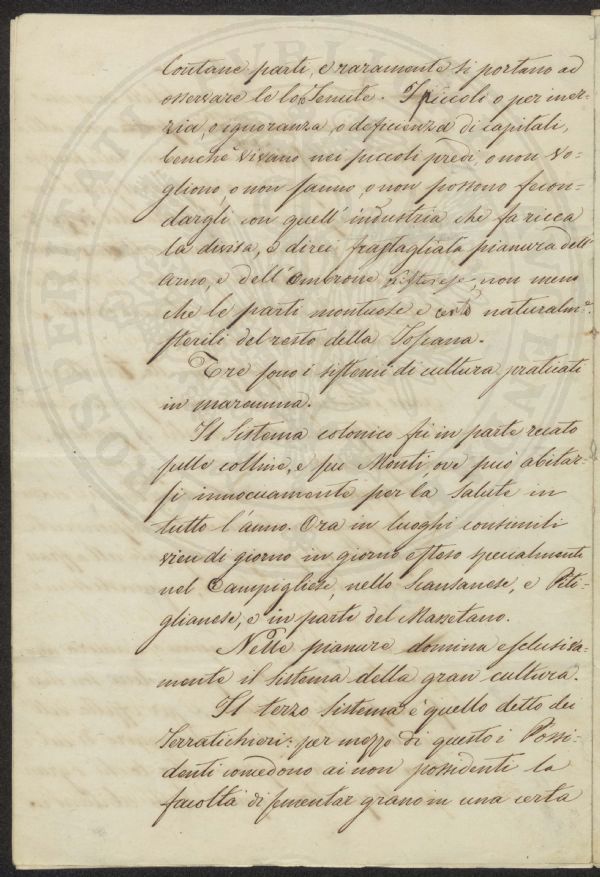 lontane parti, e raramente si portano ad
osservare le loro Tenute. I piccoli o per iner=
zia, o ignoranza, o deficienza di capitali,
benchè vivano nei piccoli predi, o non vo=
gliono, o non sanno, o non possono fecon=
dargli con quell' industria che fa ricca
la divisa, e direi frastagliata pianura dell'
Arno, e dell' Ombrone pistoiese, non meno
che le parti montuose e certo naturalme.
sterili del resto della Toscana.
Tre sono i sistemi di cultura praticati
in maremma.
Il Sistema colonico fù in parte recato
sulle colline, e su Monti, ove può abitar=
si innocuamente per la salute in
tutto l'anno. Ora in luoghi consimili
vien di giorno in giorno esteso specialmente
nel Campigliese, nello Scansanese, e Piti=
glianese, e in parte del Massetano.
Nelle pianure domina esclusiva=
mente il sistema della gran cultura.
Il terzo Sistema è quello detto dei
Terratichieri: per mezzo di questo i Possi=
denti concedono ai non possidenti la
facoltà di sementar grano in una certa
PROSPERITATI PUBLICAE